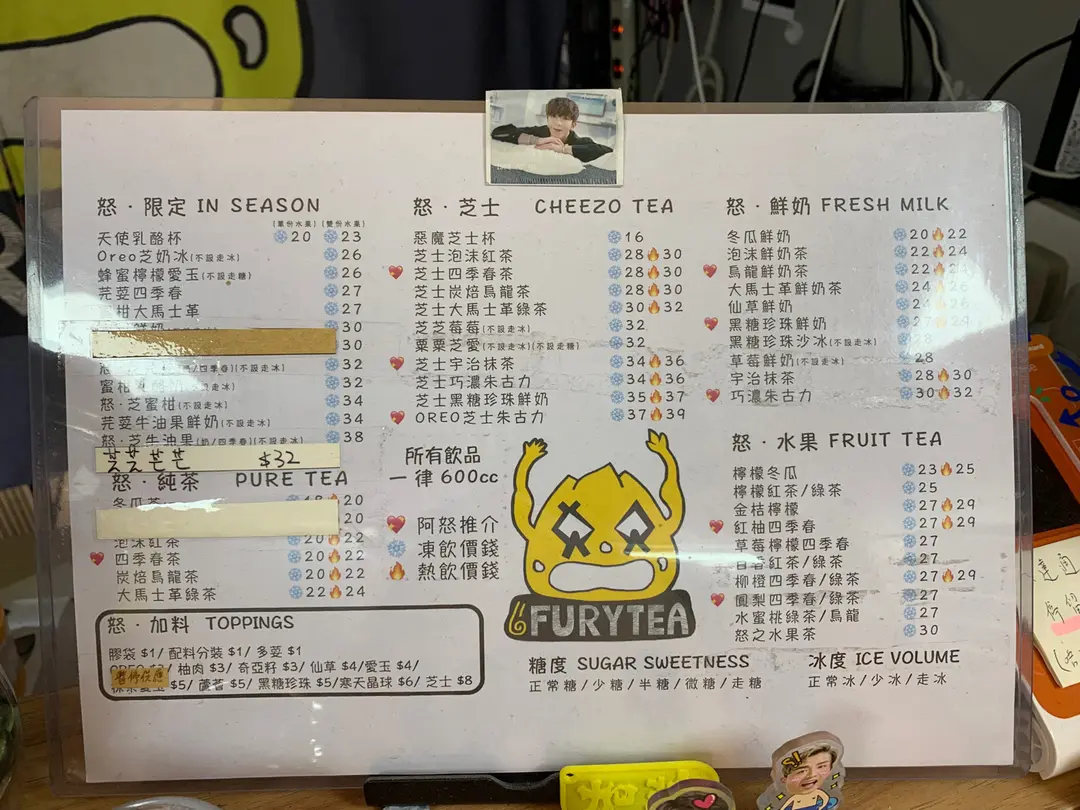 怒·限定 IN SEASON
(單份水果) (雙份水果)
天使乳酪杯 20 23
Oreo芝奶冰(不設走冰) 26
蜂蜜檸檬愛玉(不設走糖) 26
芫荽四季春 27
柑大馬士革 27
30
30
/四季春)(不設走冰) 32
蜜柑 走冰) 32
怒·芝蜜柑(不設走冰) 34
芫荽牛油果鮮奶(不設走冰) 34
怒·芝牛油果(奶/四季春)(不設走冰) 38
$32
怒·純茶 PURE TEA
冬瓜茶 20
20
泡沫紅茶 20 22
四季春茶 20 22
炭焙烏龍茶 20 22
大馬士革綠茶 22 24
怒·加料 TOPPINGS
膠袋 $1/ 配料分裝 $1/ 多荽 $1
柚肉 $3/ 奇亞籽 $3/ 仙草 $4/愛玉 $4/
暫停供應
$5/ 蘆薈 $5/ 黑糖珍珠 $5/寒天晶球 $6/ 芝士 $8
怒·芝士 CHEEZO TEA
惡魔芝士杯 16
芝士泡沫紅茶 28 30
芝士四季春茶 28 30
芝士炭焙烏龍茶 28 30
芝士大馬士革綠茶 30 32
芝芝莓莓(不設走冰) 32
粟粟芝愛(不設走冰)(不設走糖) 32
芝士宇治抹茶 34 36
芝士巧濃朱古力 34 36
芝士黑糖珍珠鮮奶 35 37
OREO芝士朱古力 37 39
所有飲品
一律 600cc
阿怒推介
凍飲價錢
熱飲價錢
FURYTEA
怒·鮮奶 FRESH MILK
冬瓜鮮奶 20 22
泡沫鮮奶茶 22 24
烏龍鮮奶茶 22 24
大馬士革鮮奶茶 24 26
仙草鮮奶 24 26
黑糖珍珠鮮奶 27 29
黑糖珍珠沙冰(不設走冰) 28
草莓鮮奶(不設走冰) 28
宇治抹茶 28 30
巧濃朱古力 30 32
怒·水果 FRUIT TEA
檸檬冬瓜 23 25
檸檬紅茶/綠茶 25
金桔檸檬 27 29
紅柚四季春 27 29
草莓檸檬四季春 27
百香紅茶/綠茶 27
柳橙四季春/綠茶 27 29
鳳梨四季春/綠茶 27
水蜜桃綠茶/烏龍 27
怒之水果茶 30
糖度 SUGAR SWEETNESS
正常糖/少糖/半糖/微糖/走糖
冰度 ICE VOLUME
正常冰/少冰/走冰